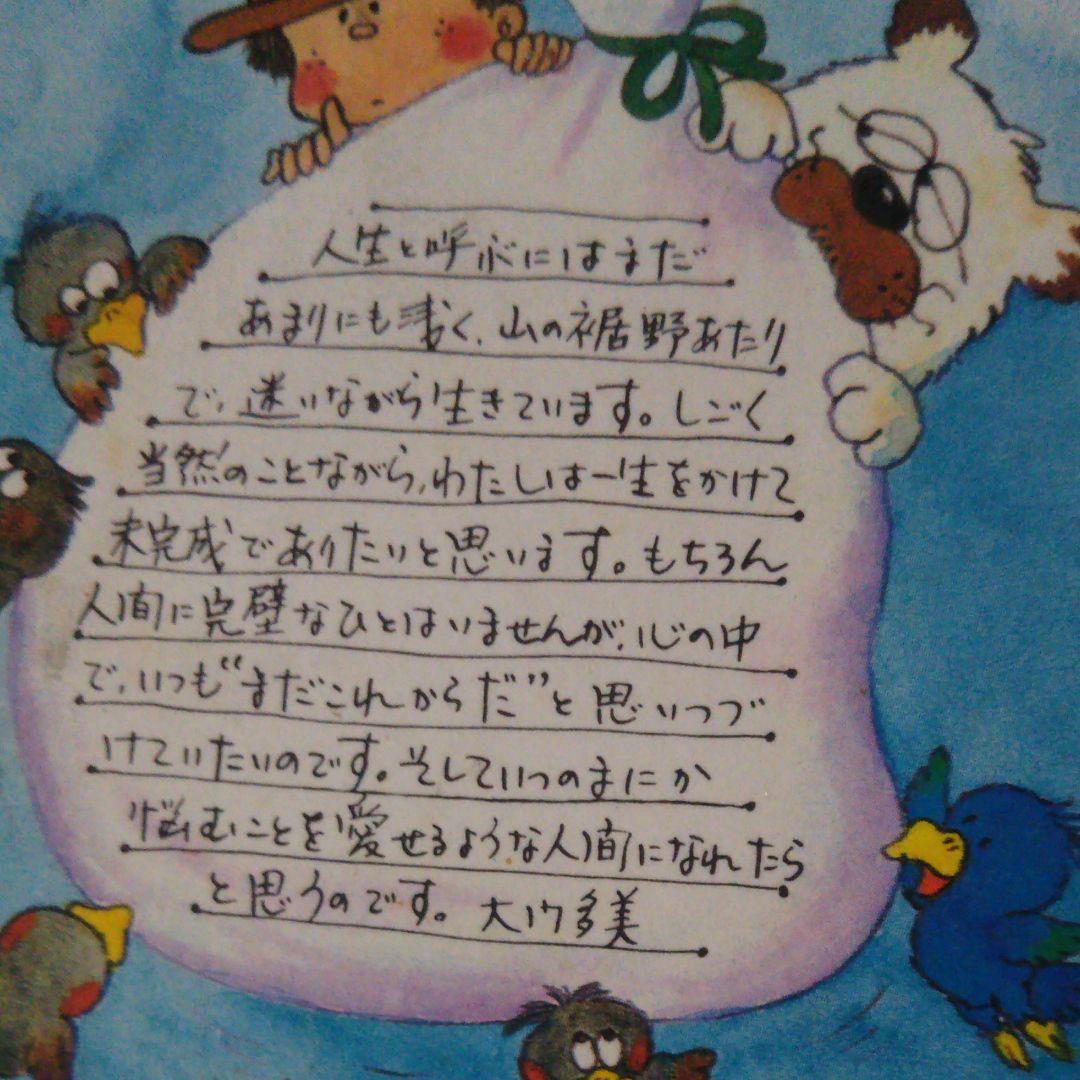 人生と呼ぶにはまだ
あまりにも浅く、山の裾野あたり
で、迷いながら生きています。しごく
当然のことながら、わたしは一生をかけて
未完成でありたいと思います。もちろん
人間に完璧なひとはいませんが、心の中
で、いつも“まだこれからだ”と思いつづ
けていたいのです。そしていつのまにか
悩むことを愛せるような人間になれたら
と思うのです。 大内多美